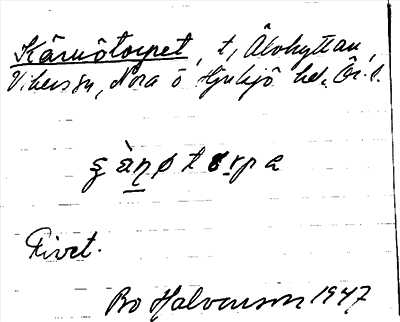 Kärnötorpet, t, Älvhyttan,
Vikers sn, Nora o Hjulsjö hd. Ör. l.
gàṉøtorpa
Civet.
Bo Halvorson 1947